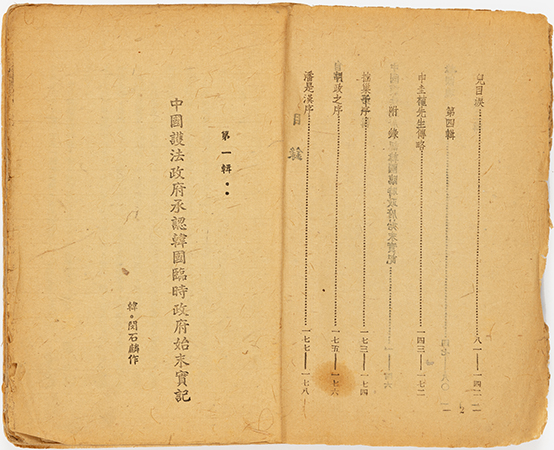 兒目淚 八一——一四二
第四輯
申圭植先生傳略 一四三——一七二
附 錄
一七三——一七四
胡政之序 一七五——一七六
潘是漢序 一七七——一七八
目 錄
第一輯
中國護法政府承認韓國臨時政府始末實記
韓·閔石麟作